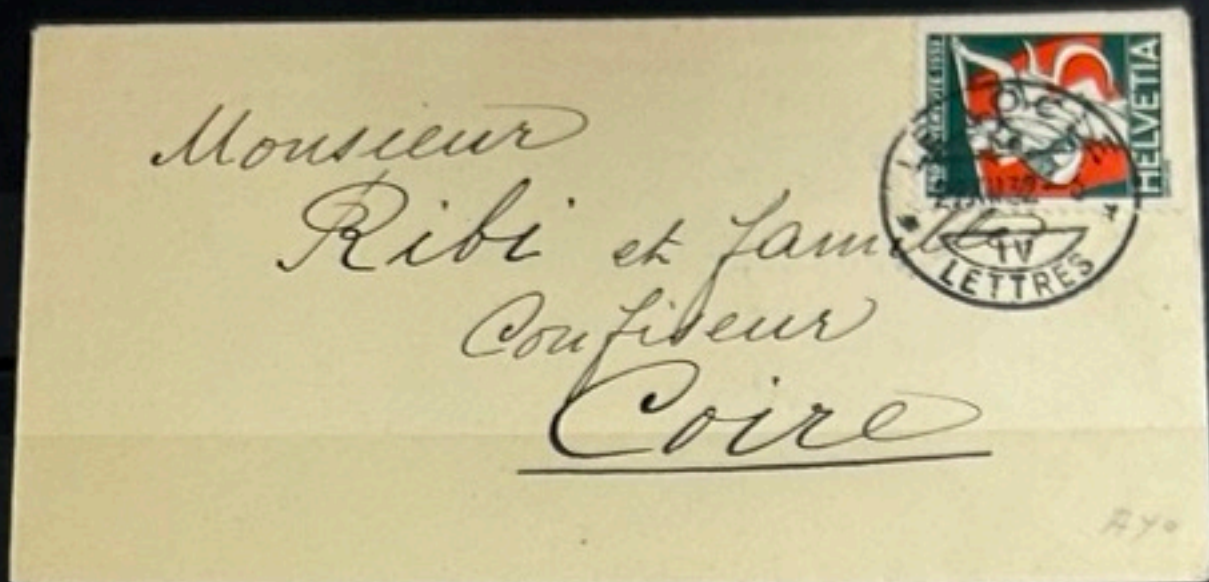 Monsieur
Ribi et famille
Confiseur
Coire
HELVETIA
5
LE LOCLE
IV
LETTRES